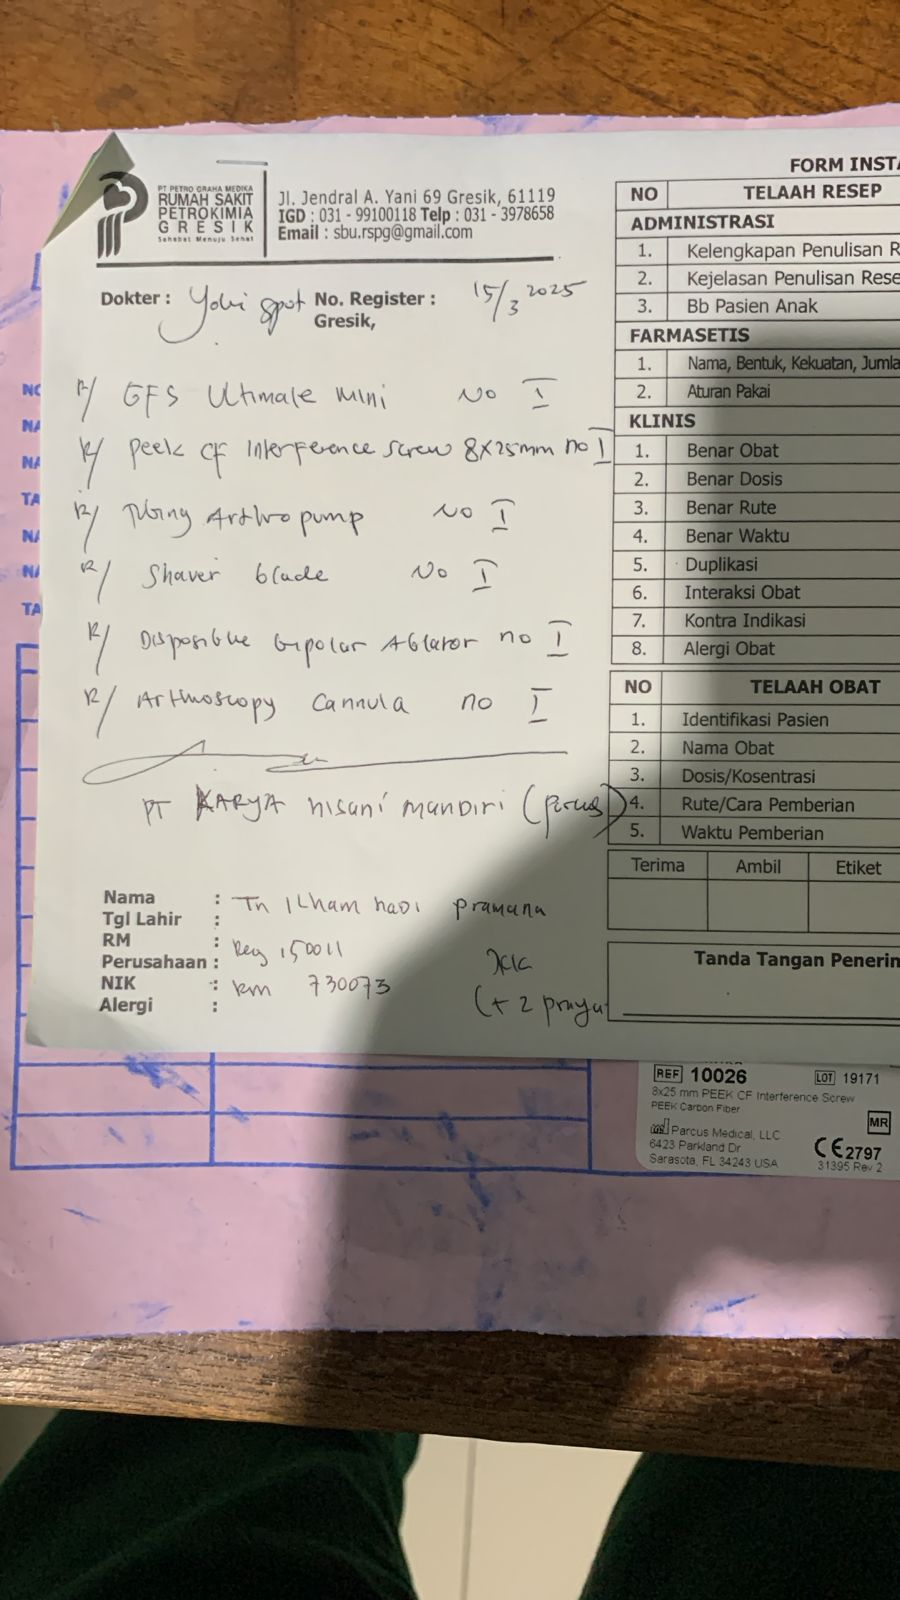 PT PETRO GRAHA MEDIKA
RUMAH SAKIT
PETROKIMIA
GRESIK
Sahabat Menuju Sehat
Jl. Jendral A. Yani 69 Gresik, 61119
IGD : 031 - 99100118 Telp : 031 - 3978658
Email : sbu.rspg@gmail.com
Dokter : Yobi spot No. Register : 15/3 2025
Gresik,
R/ GFS Ultimate mini No I
R/ Peek CF Interference screw 8x25mm no I
R/ Tubing Arthropump No I
R/ Shaver blade No I
R/ Disposible bipolar Ablator no I
R/ Arthroscopy Cannula no I
PT KARYA nisani manDiri (parcus)
Nama : Tn ILham haDi pramana
Tgl Lahir :
RM : Reg 150011
Perusahaan :
NIK : Rm 730073
Alergi :
(+ 2
FORM INSTA
NO TELAAH RESEP
ADMINISTRASI
1. Kelengkapan Penulisan R
2. Kejelasan Penulisan Rese
3. Bb Pasien Anak
FARMASETIS
1. Nama, Bentuk, Kekuatan, Jumla
2. Aturan Pakai
KLINIS
1. Benar Obat
2. Benar Dosis
3. Benar Rute
4. Benar Waktu
5. Duplikasi
6. Interaksi Obat
7. Kontra Indikasi
8. Alergi Obat
NO TELAAH OBAT
1. Identifikasi Pasien
2. Nama Obat
3. Dosis/Kosentrasi
4. Rute/Cara Pemberian
5. Waktu Pemberian
Terima Ambil Etiket
Tanda Tangan Penerin
NO
NA
NA
TA
NA
NA
TA
REF 10026 LOT 19171
8x25 mm PEEK CF Interference Screw
PEEK Carbon Fiber
MR
Parcus Medical, LLC
6423 Parkland Dr
Sarasota, FL 34243 USA
CE 2797
31395 Rev 2